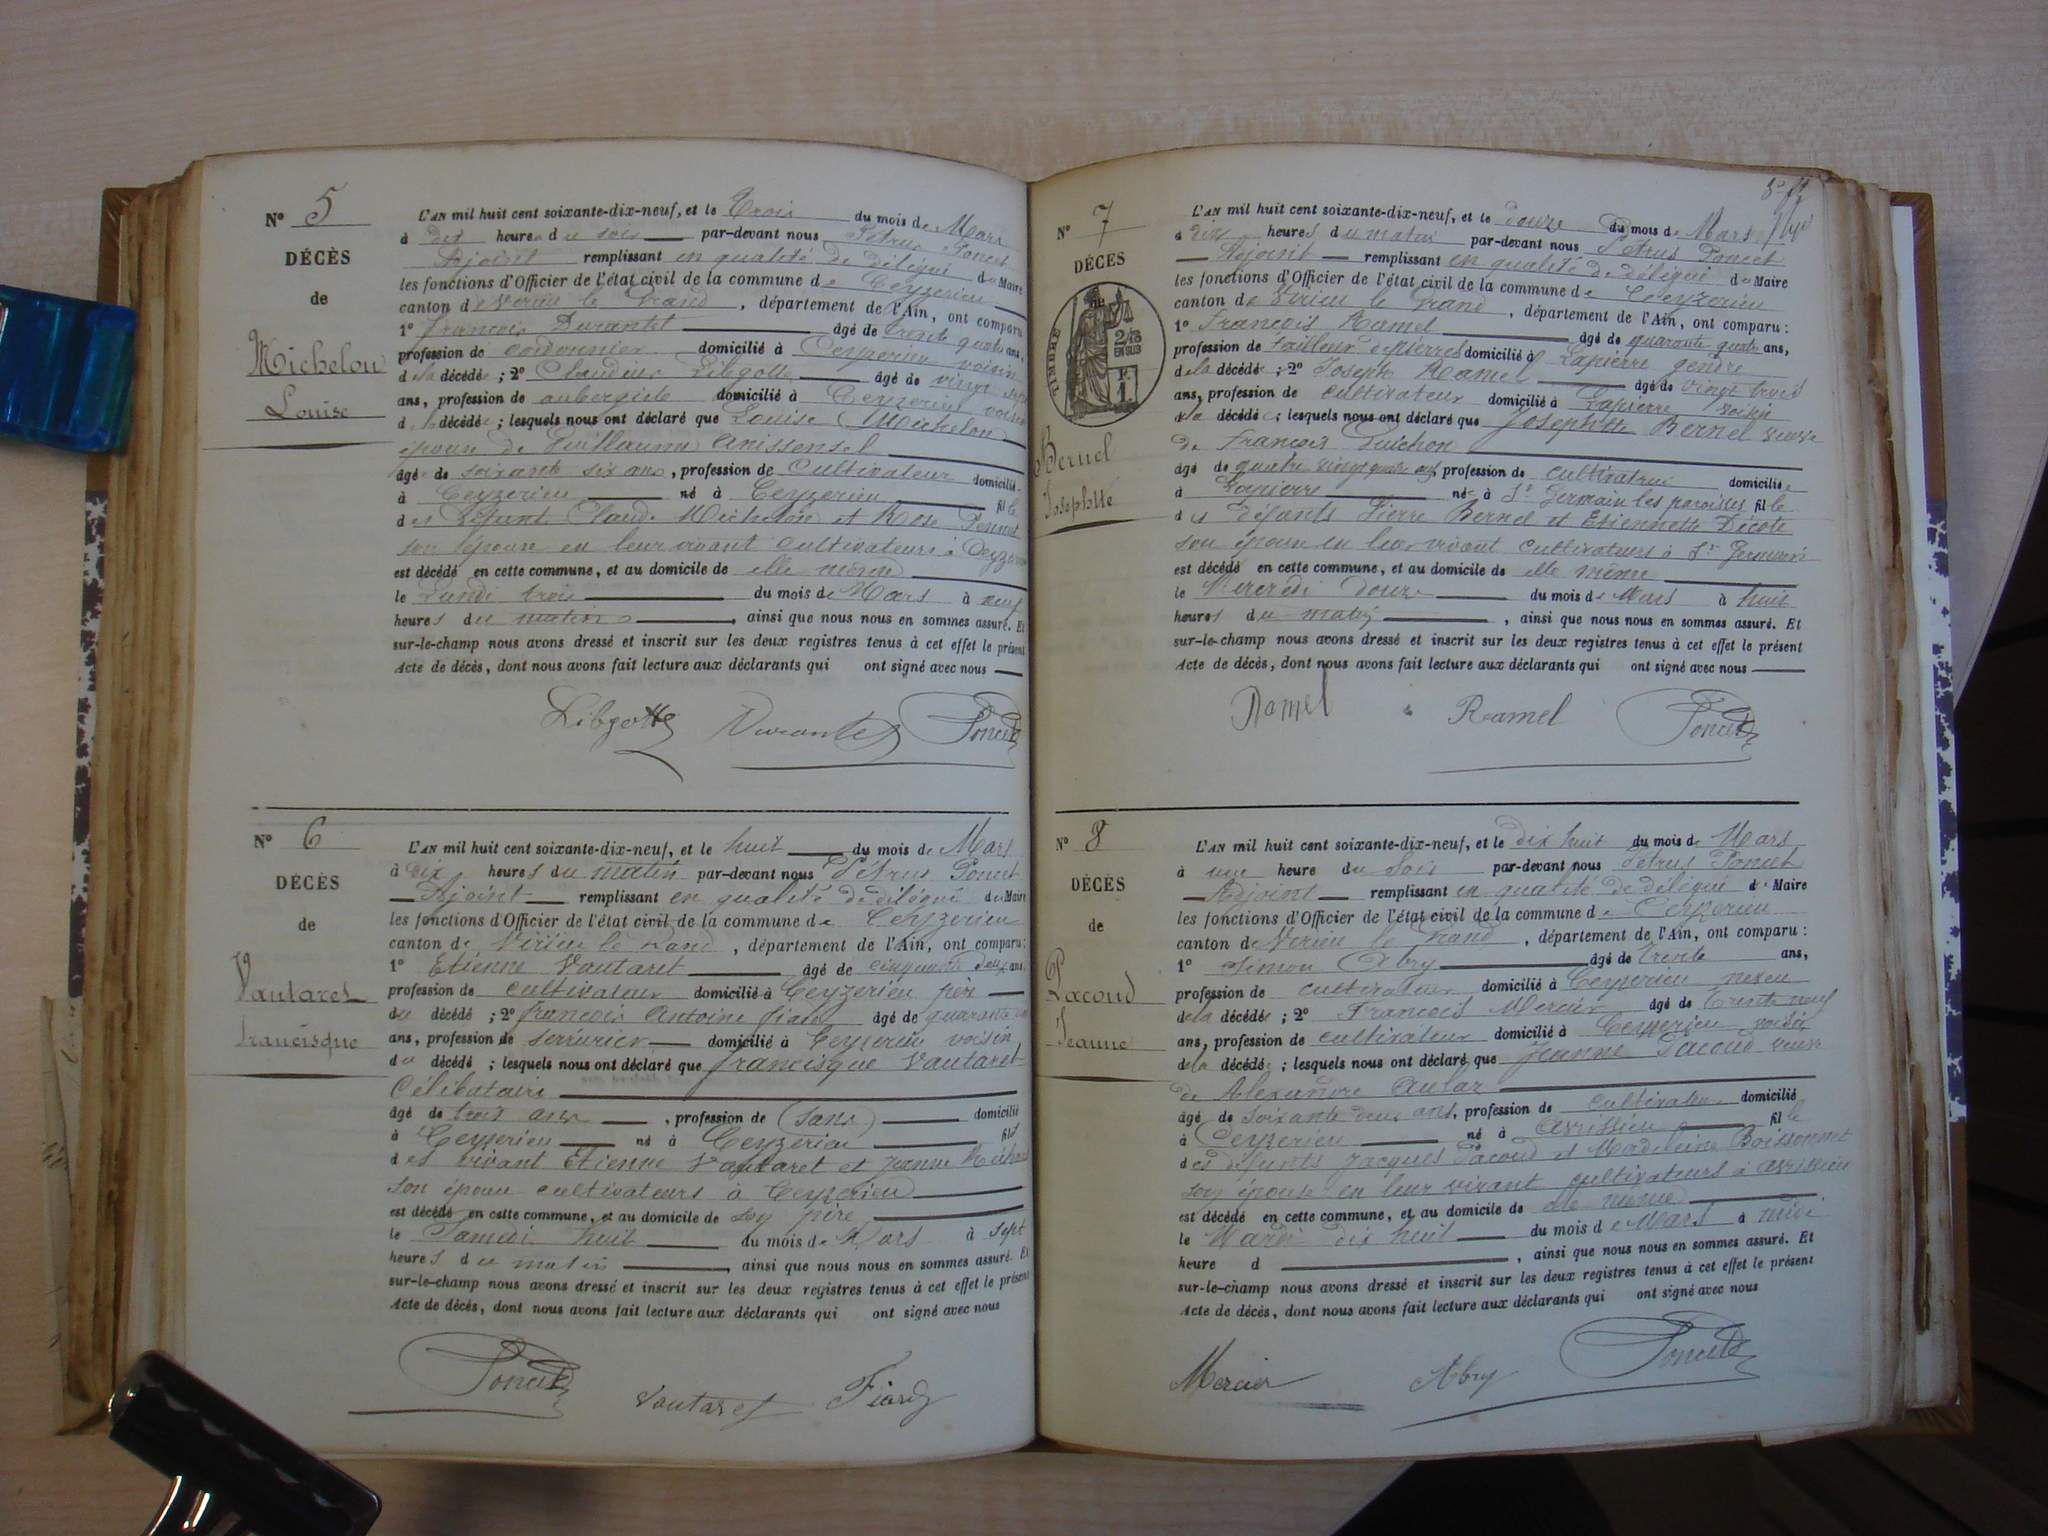 N° 5
DÉCÈS
de
Michelon
Louise
L'AN mil huit cent soixante-dix-neuf, et le Trois du mois de Mars
à dix heures du soir par-devant nous Pétrus Poncet
Adjoint remplissant en qualité de délégué de Maire
les fonctions d'Officier de l'état civil de la commune de Ceyzerieu
canton de Virieu le Grand, département de l'Ain, ont comparu
1° François Durantet âgé de trente quatre ans,
profession de cordonnier domicilié à Ceyzerieu voisin
de la décédée ; 2° Claudius Libgotte âgé de vingt sept
ans, profession de aubergiste domicilié à Ceyzerieu voisin
de la décédée ; lesquels nous ont déclaré que Louise Michelon
épouse de Guillaume Anissensel
âgé de soixante six ans, profession de Cultivateur domicilié
à Ceyzerieu né à Ceyzerieu fille
des défunts Claude Michelon et Rose
son épouse en leur vivant cultivateurs à Ceyzerieu
est décédé en cette commune, et au domicile de elle même
le Lundi trois du mois de Mars à neuf
heures du matin, ainsi que nous nous en sommes assuré. Et
sur-le-champ nous avons dressé et inscrit sur les deux registres tenus à cet effet le présent
Acte de décès, dont nous avons fait lecture aux déclarants qui ont signé avec nous
Libgotte Durantet Poncet
N° 6
DÉCÈS
de
Vautaret
francisque
L'AN mil huit cent soixante-dix-neuf, et le huit du mois de Mars
à dix heures du matin par-devant nous Pétrus Poncet
Adjoint remplissant en qualité de délégué du Maire
les fonctions d'Officier de l'état civil de la commune de Ceyzerieu
canton de Virieu le Grand, département de l'Ain, ont comparu :
1° Etienne Vautaret âgé de cinquante deux ans,
profession de cultivateur domicilié à Ceyzerieu père
du décédé ; 2° françois Antoine Fiard âgé de quarante
ans, profession de serrurier domicilié à Ceyzerieu voisin
du décédé ; lesquels nous ont déclaré que francisque Vautaret
Célibataire
âgé de trois ans, profession de (sans) domicilié
à Ceyzerieu né à Ceyzerieu fils
des vivant Etienne Vautaret et Jeanne
son épouse cultivateurs à Ceyzerieu
est décédé en cette commune, et au domicile de son père
le Samedi huit du mois de Mars à sept
heures du matin, ainsi que nous nous en sommes assuré. Et
sur-le-champ nous avons dressé et inscrit sur les deux registres tenus à cet effet le présent
Acte de décès, dont nous avons fait lecture aux déclarants qui ont signé avec nous
Poncet Vautaret Fiard
N° 7
DÉCÈS
de
TIMBRE
2/10 EN SUS
Bernel
Josephtte
L'AN mil huit cent soixante-dix-neuf, et le douze du mois de Mars
à dix heures du matin par-devant nous Pétrus Poncet
Adjoint remplissant en qualité de délégué de Maire
les fonctions d'Officier de l'état civil de la commune de Ceyzerieu
canton de Virieu le Grand, département de l'Ain, ont comparu :
1° François Ramel âgé de quarante quatre ans,
profession de tailleur de pierres domicilié à Lapierre gendre
de la décédée ; 2° Joseph Ramel âgé de vingt trois
ans, profession de cultivateur domicilié à Lapierre voisin
de la décédée ; lesquels nous ont déclaré que Josephtte Bernel veuve
de François Guichon
âgé de quatre vingt quatre ans, profession de cultivatrice domiciliée
à Lapierre née à St Germain les paroisses fille
des défunts Pierre Bernel et Etiennette Décote
son épouse en leur vivant cultivateurs à St Germain
est décédé en cette commune, et au domicile de elle même
le Mercredi douze du mois de Mars à huit
heures du matin, ainsi que nous nous en sommes assuré. Et
sur-le-champ nous avons dressé et inscrit sur les deux registres tenus à cet effet le présent
Acte de décès, dont nous avons fait lecture aux déclarants qui ont signé avec nous
Ramel Ramel Poncet
N° 8
DÉCÈS
de
Pacoud
Jeanne
L'AN mil huit cent soixante-dix-neuf, et le dix huit du mois de Mars
à une heure du soir par-devant nous Pétrus Poncet
Adjoint remplissant en qualité de délégué de Maire
les fonctions d'Officier de l'état civil de la commune de Ceyzerieu
canton de Virieu le Grand, département de l'Ain, ont comparu :
1° Simon Abry âgé de trente ans,
profession de cultivateur domicilié à Ceyzerieu neveu
de la décédée ; 2° François Mercier âgé de trente neuf
ans, profession de cultivateur domicilié à Ceyzerieu voisin
de la décédée ; lesquels nous ont déclaré que Jeanne Pacoud veuve
de Alexandre
âgé de soixante deux ans, profession de cultivateur domicilié
à Ceyzerieu né à Avrissieu fille
des défunts Jacques Pacoud et Madeleine Boissonnet
son épouse en leur vivant cultivateurs à Avrissieu
est décédé en cette commune, et au domicile de elle même
le Mardi dix huit du mois de Mars à midi
heure d, ainsi que nous nous en sommes assuré. Et
sur-le-champ nous avons dressé et inscrit sur les deux registres tenus à cet effet le présent
Acte de décès, dont nous avons fait lecture aux déclarants qui ont signé avec nous
Mercier Abry Poncet